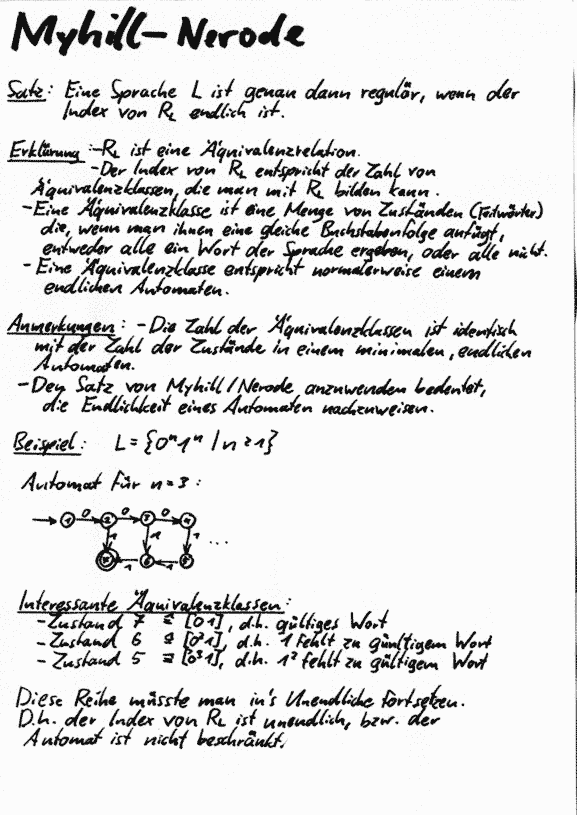 Myhill-Nerode
Satz: Eine Sprache L ist genau dann regulär, wenn der
Index von R_L endlich ist.
Erklärung: -R_L ist eine Äquivalenzrelation.
-Der Index von R_L entspricht der Zahl von
Äquivalenzklassen, die man mit R_L bilden kann.
-Eine Äquivalenzklasse ist eine Menge von Zuständen (Teilwörter)
die, wenn man ihnen eine gleiche Buchstabenfolge anfügt,
entweder alle ein Wort der Sprache ergeben, oder alle nicht.
- Eine Äquivalenzklasse entspricht normalerweise einem
endlichen Automaten.
Anmerkungen: - Die Zahl der Äquivalenzklassen ist identisch
mit der Zahl der Zustände in einem minimalen, endlichen
Automaten.
-Den Satz von Myhill/Nerode anzuwenden bedeutet,
die Endlichkeit eines Automaten nachzuweisen.
Beispiel: L = {0ⁿ1ⁿ | n ≥ 1}
Automat für n=3:
0 0 0
1 2 3 4
1 1 1 ...
7 6 5
1 1
Interessante Äquivalenzklassen:
-Zustand 7 ≙ [01], d.h. gültiges Wort
-Zustand 6 ≙ [0²1], d.h. 1 fehlt zu günltigem Wort
- Zustand 5 ≙ [0³1], d.h. 1² fehlt zu gültigem Wort
Diese Reihe müsste man in's Unendliche fortsetzen.
D.h. der Index von R_L ist unendlich, bzw. der
Automat ist nicht beschränkt.